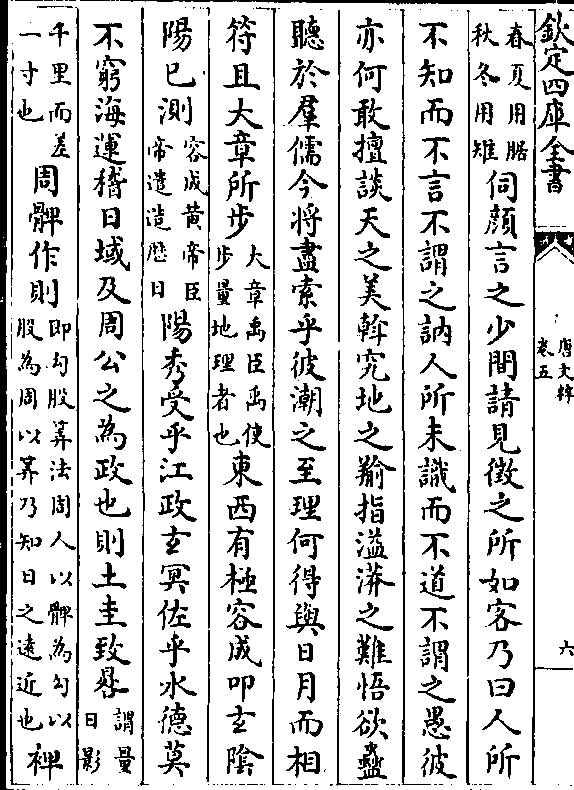 欽定四庫全書
唐文粹
卷五
六
春夏用腒
秋冬用雉
伺顔言之少間請見徴之所如客乃曰人所
不知而不言不謂之訥人所未識而不道不謂之愚彼
亦何敢擅談天之美斡究地之
指溢漭之難悟欲蠡
聴於羣儒今将盡索乎彼潮之至理何得與日月而相
符且大章所步
大章禹臣禹使
歩量地理者也
東西有極容成叩玄隂
陽已測
容成黄帝臣
帝遣造厯日
陽秀受乎江政玄冥佐乎水徳莫
不窮海運稽日域及周公之為政也則土圭致晷
謂量
日影
千里而差
一寸也
周髀作則
即勾股筭法周人以髀為勾以
股為周以筭乃知日之逺近也
裨